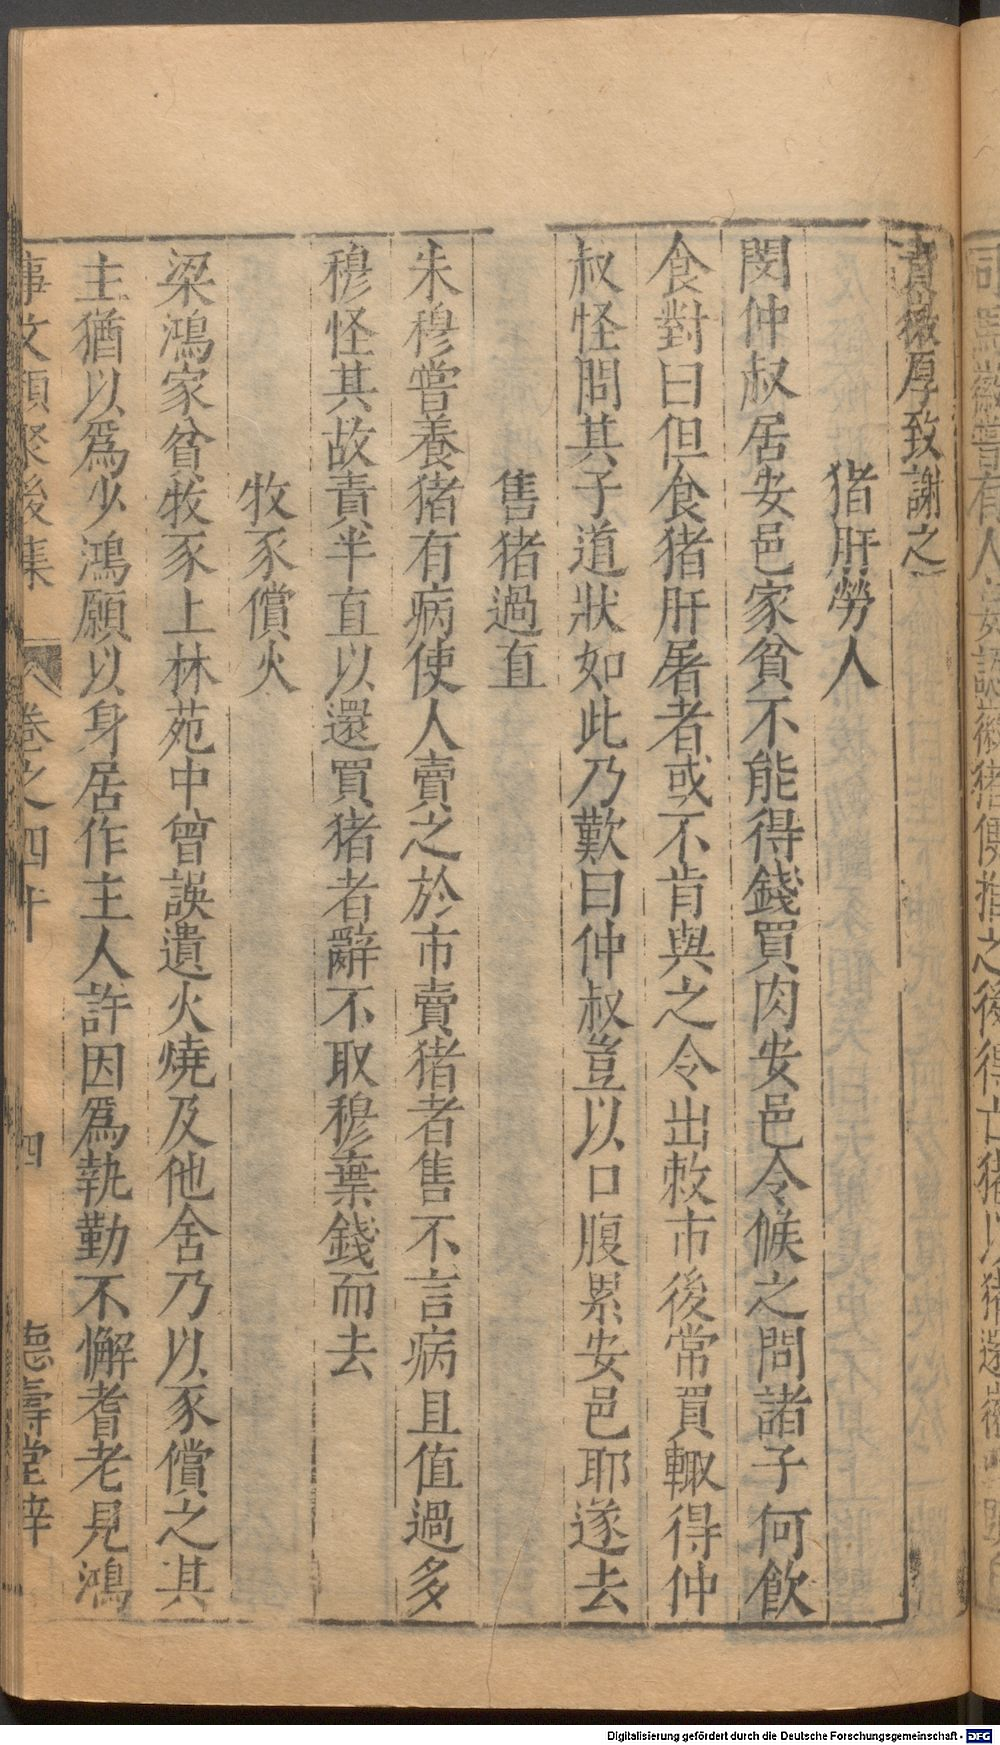 責徽厚致謝之
猪肝勞人
閔仲叔居安邑家貧不能得錢買肉安邑令候之問諸子何飲
食對曰但食猪肝屠者或不肯與之令出敕市後常買輙得仲
叔怪問其子道狀如此乃歎曰仲叔豈以口腹累安邑耶遂去
售猪過直
朱穆嘗養猪有病使人賣之於市賣猪者售不言病且值過多
穆怪其故責半直以還買猪者辭不取穆棄錢而去
牧豕償火
梁鴻家貧牧豕上林苑中曾誤遺火燒及他舍乃以豕償之其
主猶以爲少鴻願以身居作主人許因爲執勤不懈耆老見鴻
事文類聚後集 卷之四十 四 德壽堂梓
Digitalisierung gefördert durch die Deutsche Forschungsgemeinschaft - DFG